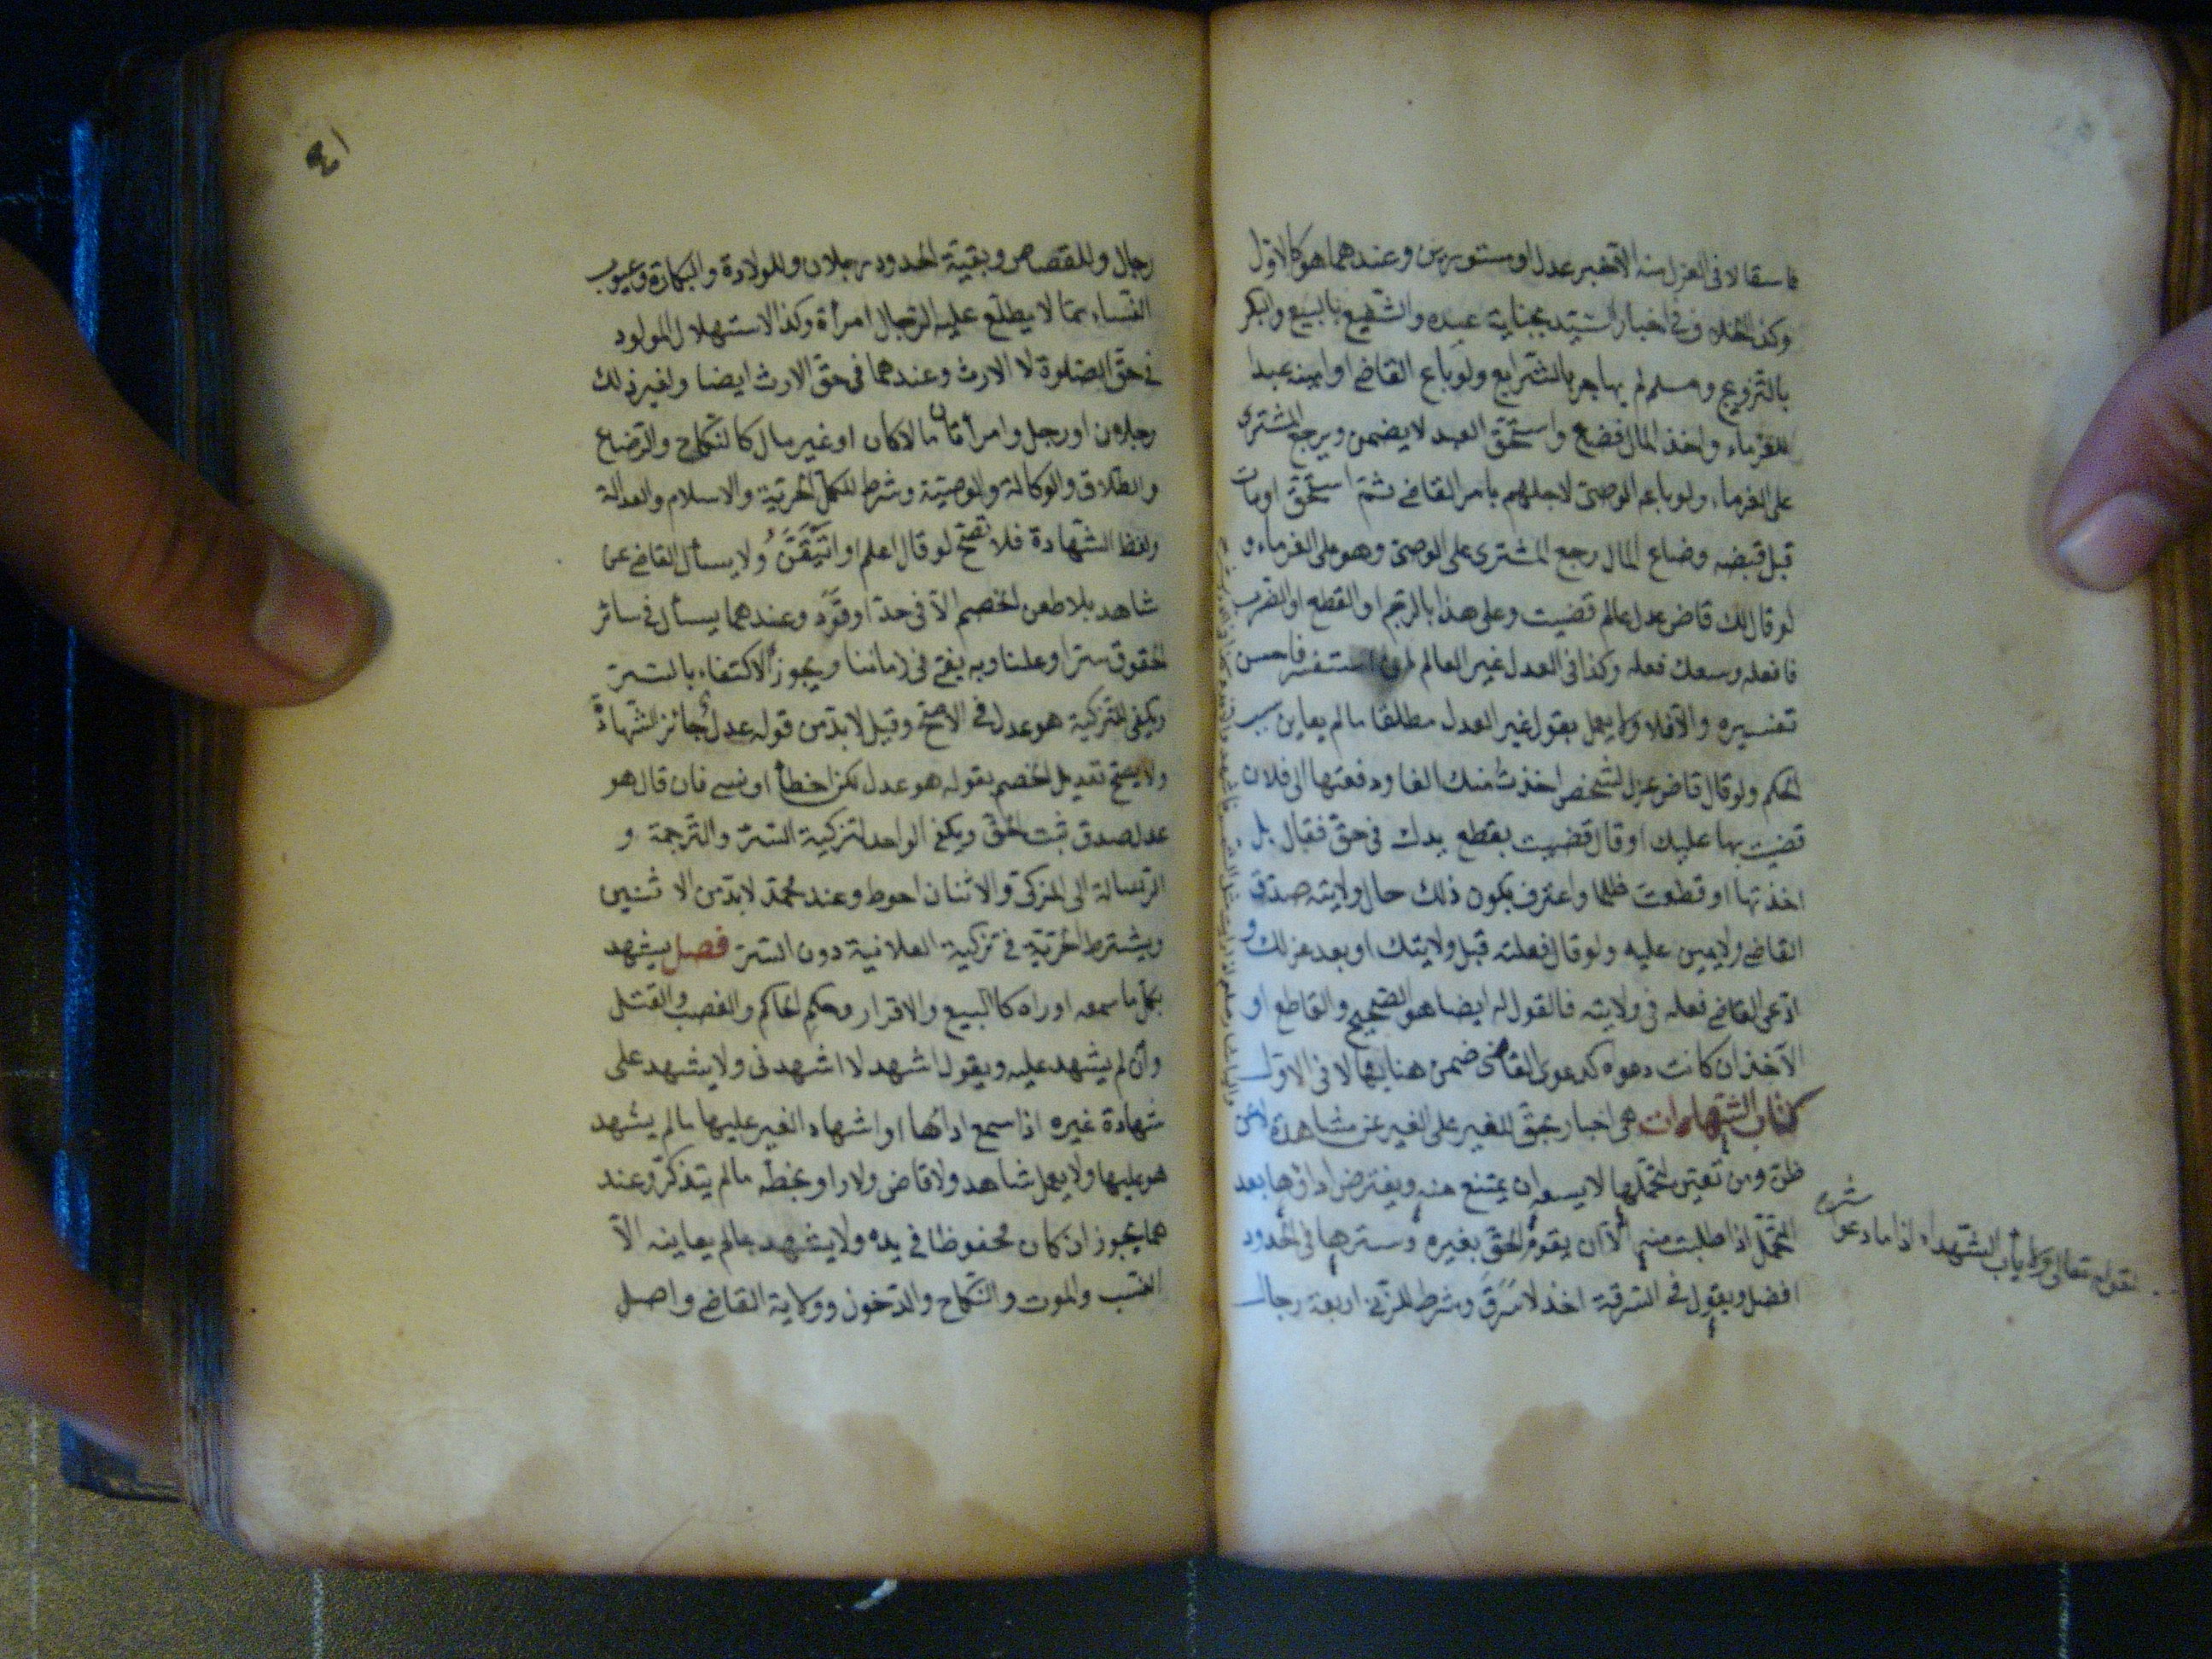 فاسقا لا فى العزل منه الا خبر عدل او مستورين وعندهما هو كالاول
وكذا الخلاف فى اخبار السيد بجناية عبده والشفيع بالبيع والبكر
بالتزويج ومسلم لم يهاجر بالشرايع ولو باع القاضى او امينه عبدا
للغرماء واخذ المال فضاع واستحق العبد لا يضمن ويرجع المشترى
على الغرماء ولو باعه الوصى لاجلهم بامر القاضى ثم استحق او مات
قبل قبضه وضاع المال رجع المشترى على الوصى وهو على الغرماء و
لو قال لك قاض عدل عالم قضيت على هذا بالرجم او القطع او الضرب
فافعله وسعك فعله وكذا فى العدل غير العالم ان استفسر فاحسن
تفسيره والا فلا ولا يعمل بقول غير العدل مطلقا ما لم يعاين سبب
الحكم ولو قال قاض عزل لشخص اخذت منك الفا ودفعتها الى فلان
قضيت بها عليك او قال قضيت بقطع يدك فى حق فقال بل
اخذتها او قطعت ظلما واعترف بكون ذلك حال ولايته صدق
القاضى ولا يمين عليه ولو قال فعلته قبل ولايتك او بعد عزلك و
ادعى القاضى فعله فى ولايته فالقول له ايضا هو الصحيح والقاطع او
الآخذ ان كانت دعوه كدعوى القاضى ضمن هنا لا فى الاول
كتاب الشهادات هى اخبار بحق للغير على الغير عن مشاهدة لا عن
ظن ومن تعين لتحملها لا يسعه ان يمتنع منه ويفترض اداؤها بعد
التحمل اذا طلبت منه الا ان يقوم الحق بغيره وسترها فى الحدود
افضل ويقول فى السرقة اخذ لا سرق وشرط للزنى اربعة رجال
شرح
لقوله تعالى ولا يأب الشهداء اذا ما دعوا
٤١
رجال وللقصاص وبقية الحدود رجلان وللولادة والبكارة وعيوب
النساء مما لا يطلع عليه الرجال امرأة وكذا الاستهلال المولود
فى حق الصلوة لا الارث وعندهما فى حق الارث ايضا ولغير ذلك
رجلان او رجل وامرأتان مالا كان او غير مال كالنكاح والرضاع
والطلاق والوكالة والوصية وشرط للكل الحرية والاسلام والعدالة
ولفظ الشهادة فلا تصح لو قال اعلم او اتيقن ولا يسأل القاضى عن
شاهد بلا طعن الخصم الا فى حد او قود وعندهما يسأل فى سائر
الحقوق سرا وعلنا وبه يفتى فى زماننا ويجوز الاكتفاء بالسر
ويكفى للتزكية هو عدل فى الاصح وقيل لا بد من قوله عدل جائز الشهادة
ولا يصح تعديل الخصم بقوله هو عدل لكن اخطأ او نسى فان قال هو
عدل صدق ثبت الحق ويكفى الواحد لتزكية السر والترجمة و
الرسالة الى المزكى والاثنان احوط وعند محمد لا بد من الاثنين
ويشترط الحرية فى تزكية العلانية دون السر فصل يشهد
بكل ما سمعه او راه كالبيع والاقرار وحكم الحاكم والغصب والقتل
وان لم يشهد عليه ويقول اشهد لا اشهدنى ولا يشهد على
شهادة غيره اذا سمع اداءها او اشهاد الغير عليها ما لم يشهد
هو عليها ولا يعمل شاهد ولا قاض ولا راو بخطه ما لم يتذكر وعند
هما يجوز ان كان محفوظا فى يده ولا يشهد بما لم يعاينه الا
النسب والموت والنكاح والدخول وولاية القاضى واصل